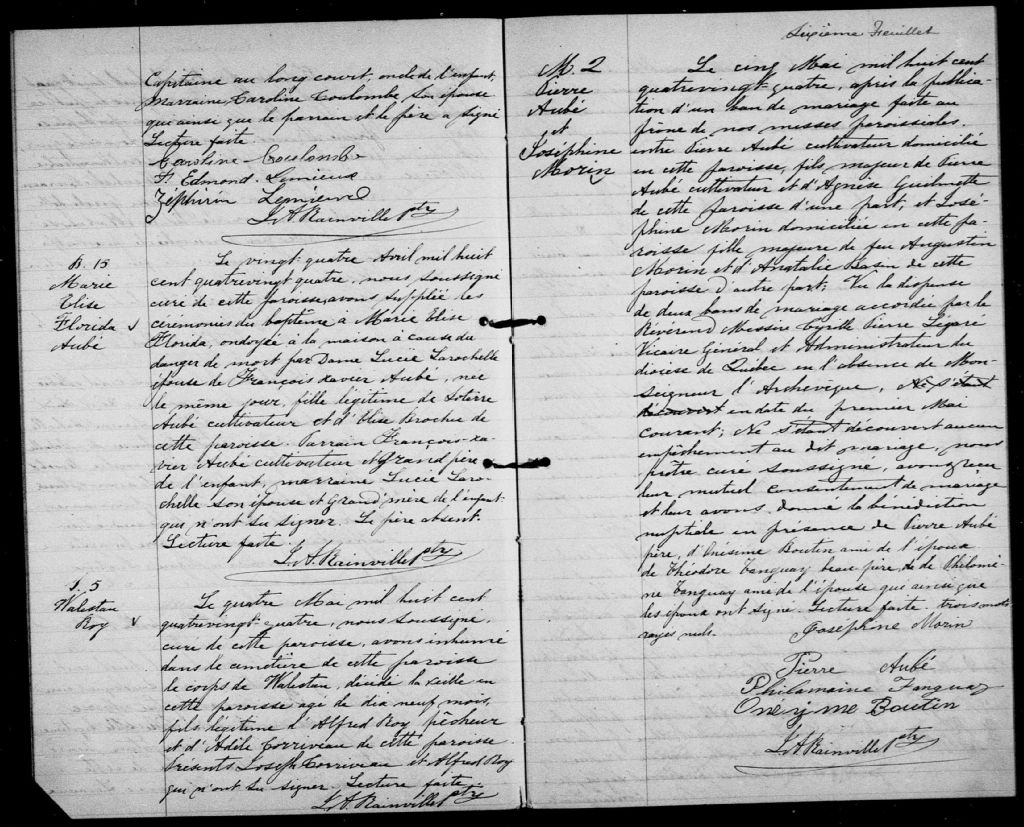 Capitaine au long court, oncle de l'enfant,
Marraine, Caroline Coulombe son épouse
qui ainsi que le parrain et le père a signé
Lecture faite.
Caroline Coulombe
F. Edmond Lemieux
Zéphirin Lemieux
J. A. Rainville ptre
B. 15
Marie
Elise
Florida
Aubé
Le vingt quatre Avril mil huit
cent quatrevingt quatre, nous soussigné
curé de cette paroisse, avons suppléé les
cérémonies du baptême à Marie Elise
Florida, ondoyée à la maison à cause du
danger de mort par Dame Lucie Larochelle
épouse de François Xavier Aubé, née
le même jour, fille légitime de Lotière
Aubé cultivateur et d'Elise Brochu de
cette paroisse. Parrain François-xa-
vier Aubé cultivateur et Grand père
de l'enfant, marraine Lucie Laro-
chelle son épouse et Grand'mère de l'enfant
qui n'ont su signer. Le père absent.
Lecture faite.
J. A. Rainville ptre
S. 5
Walestan
Roy
Le quatre Mai mil huit cent
quatrevingt quatre, nous soussigné,
curé de cette paroisse, avons inhumé
dans le cimetière de cette paroisse
le corps de Walestan, décédé la veille en
cette paroisse agé de dix neuf mois,
fils légitime d'Alfred Roy pêcheur
et d'Adèle Corriveau de cette paroisse.
Présents Joseph Corriveau et Alfred Roy
qui n'ont su signer. Lecture faite
J. A. Rainville ptre
Sixième Feuillet
M. 2
Pierre
Aubé
et
Joséphine
Morin
Le cinq Mai mil huit cent
quatrevingt-quatre, après la publica-
tion d'un ban de mariage faite au
prône de nos messes paroissiales,
entre Pierre Aubé cultivateur domicilié
en cette paroisse, fils majeur de Pierre
Aubé cultivateur et d'Agnèse Guilmette
de cette paroisse d'une part; et José-
phine Morin domiciliée en cette pa-
roisse fille majeure de feu Augustin
Morin et d'Anatalie Basin de cette
paroisse d'autre part; Vu la dispense
de deux bans de mariage accordée par le
Révérend Messire Cyrille Pierre Légaré
Vicaire Général et Administrateur du
diocèse de Québec en l'absence de Mon-
seigneur l'Archevêque, Ne s'étant
découvert en date du premier Mai
courant; Ne s'étant découvert aucun
empêchement au dit mariage, nous
prêtre curé soussigné, avons reçu
leur mutuel consentement de mariage
et leur avons donné la bénédiction
nuptiale en présence de Pierre Aubé
père, d'Onésime Boutin ami de l'époux
de Théodore Tanguay beau père, & de Philomè-
ne Tanguay amie de l'épouse qui ainsi que
les époux ont signé. Lecture faite. trois mots
rayés nuls.
Joséphine Morin
Pierre Aubé
Philomaine Tanguay
Onezime Boutin
J. A. Rainville ptre